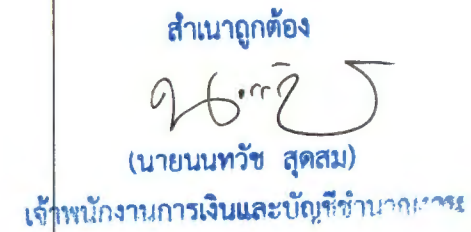 สำเนาถูกต้อง
(นายนนทวัช สุดสม)
เจ้าพนักงานการเงินและบัญชีชำนาญงาน